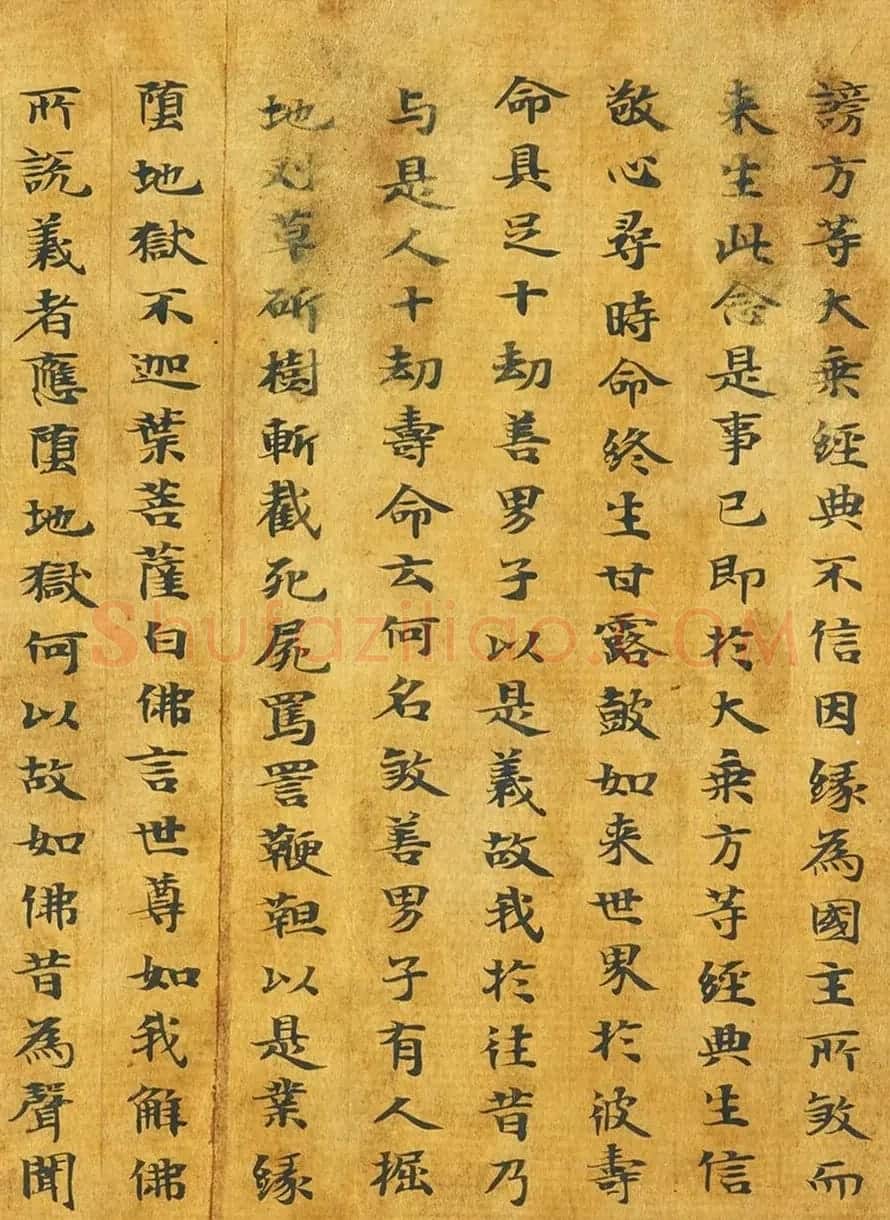 謗方等大乗經典不信因緣為國主所煞而
来生此念是事已即於大乗方等經典生信
敬心尋時命終生甘露皷如来世界於彼壽
命具足十劫善男子以是義故我於往昔乃
与是人十劫壽命云何名煞善男子有人掘
地刈草斫樹斬截死屍罵詈鞭靼以是業緣
堕地獄不迦葉菩薩白佛言世尊如我解佛
所説義者應堕地獄何以故如佛昔為聲聞
Shufaziliao.COM